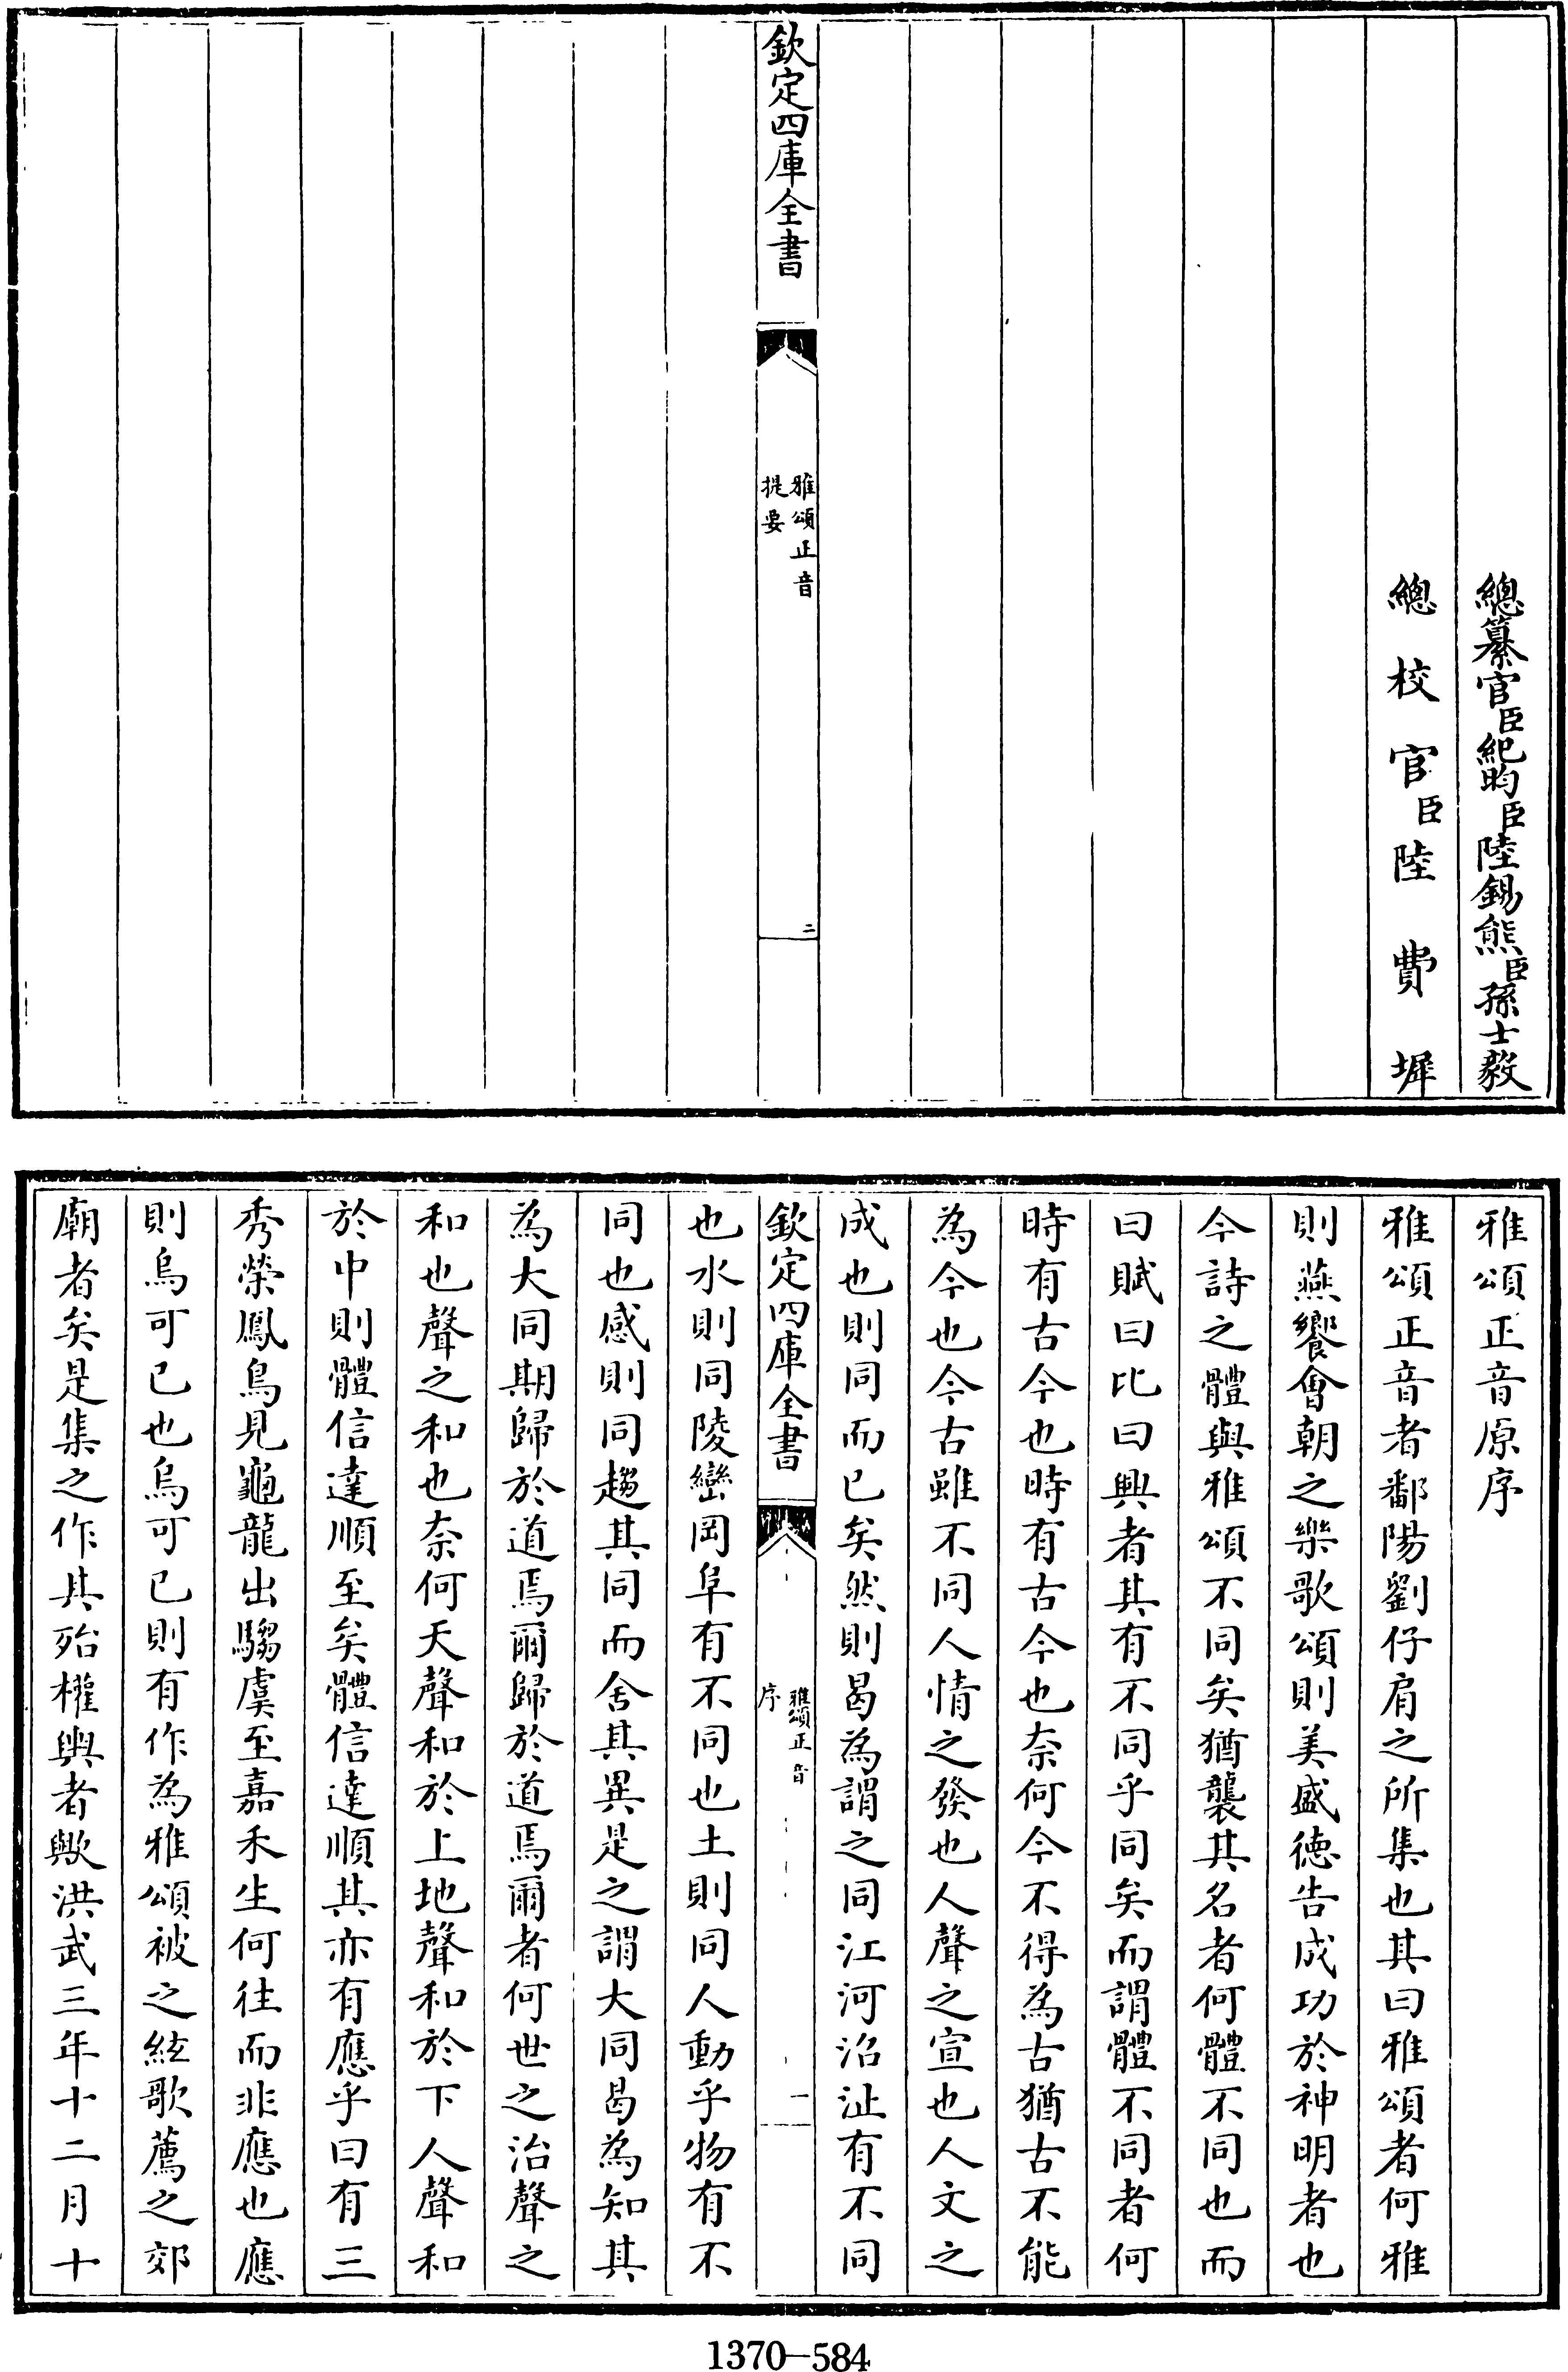 總纂官臣紀昀臣陸錫熊臣孫士毅
總校官臣陸費墀
欽定四庫全書
雅頌正音
提要
二
雅頌正音原序
雅頌正音者鄱陽劉仔肩之所集也其曰雅頌者何雅
則燕饗會朝之樂歌頌則美盛徳告成功於神明者也
今詩之體與雅頌不同矣猶襲其名者何體不同也而
曰賦曰比曰興者其有不同乎同矣而謂體不同者何
時有古今也時有古今也奈何今不得為古猶古不能
為今也今古雖不同人情之發也人聲之宣也人文之
成也則同而已矣然則曷為謂之同江河沼沚有不同
欽定四庫全書
雅頌正音
序
一
也水則同陵巒岡阜有不同也土則同人動乎物有不
同也感則同趨其同而舍其異是之謂大同曷為知其
為大同期歸於道焉爾歸於道焉爾者何世之治聲之
和也聲之和也奈何天聲和於上地聲和於下人聲和
於中則體信達順至矣體信達順其亦有應乎曰有三
秀榮鳳鳥見龜龍出騶虞至嘉禾生何往而非應也應
則烏可已也烏可已則有作為雅頌被之絃歌薦之郊
廟者矣是集之作其殆權輿者歟洪武三年十二月十
1370—584